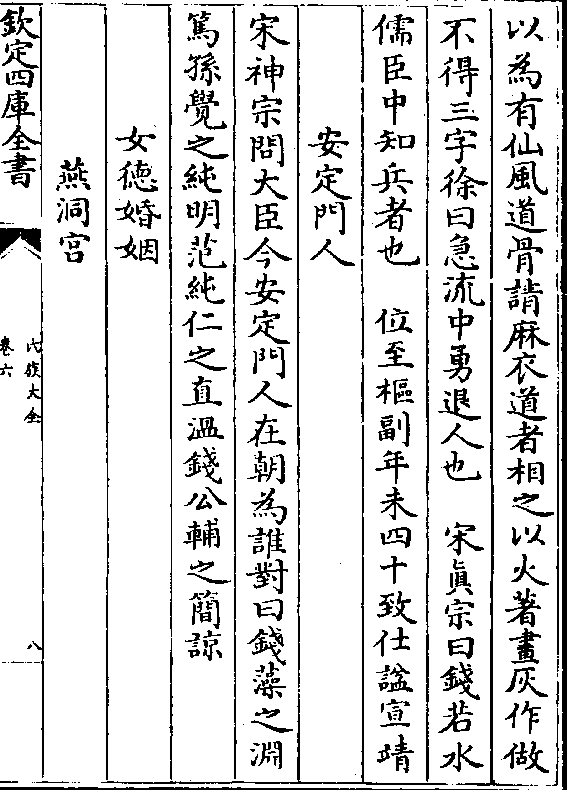 以為有仙風道骨請麻衣道者相之以火著畫灰作做
不得三字徐曰急流中勇退人也　宋真宗曰錢若水
儒臣中知兵者也　位至樞副年未四十致仕諡宣靖
安定門人
宋神宗問大臣今安定門人在朝為誰對曰錢藻之淵
篤孫覺之純明范純仁之直溫錢公輔之簡諒
女德婚姻
燕洞宫
欽定四庫全書
氏族大全
卷六
八